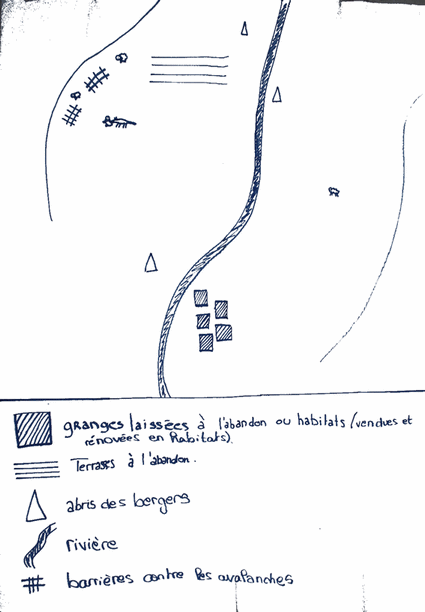 granges laissées à l'abandon ou habitats (vendues et
rénovées en habitats).
Terrases à l'abandon.
abris des bergers
rivière
barrières contre les avalanches